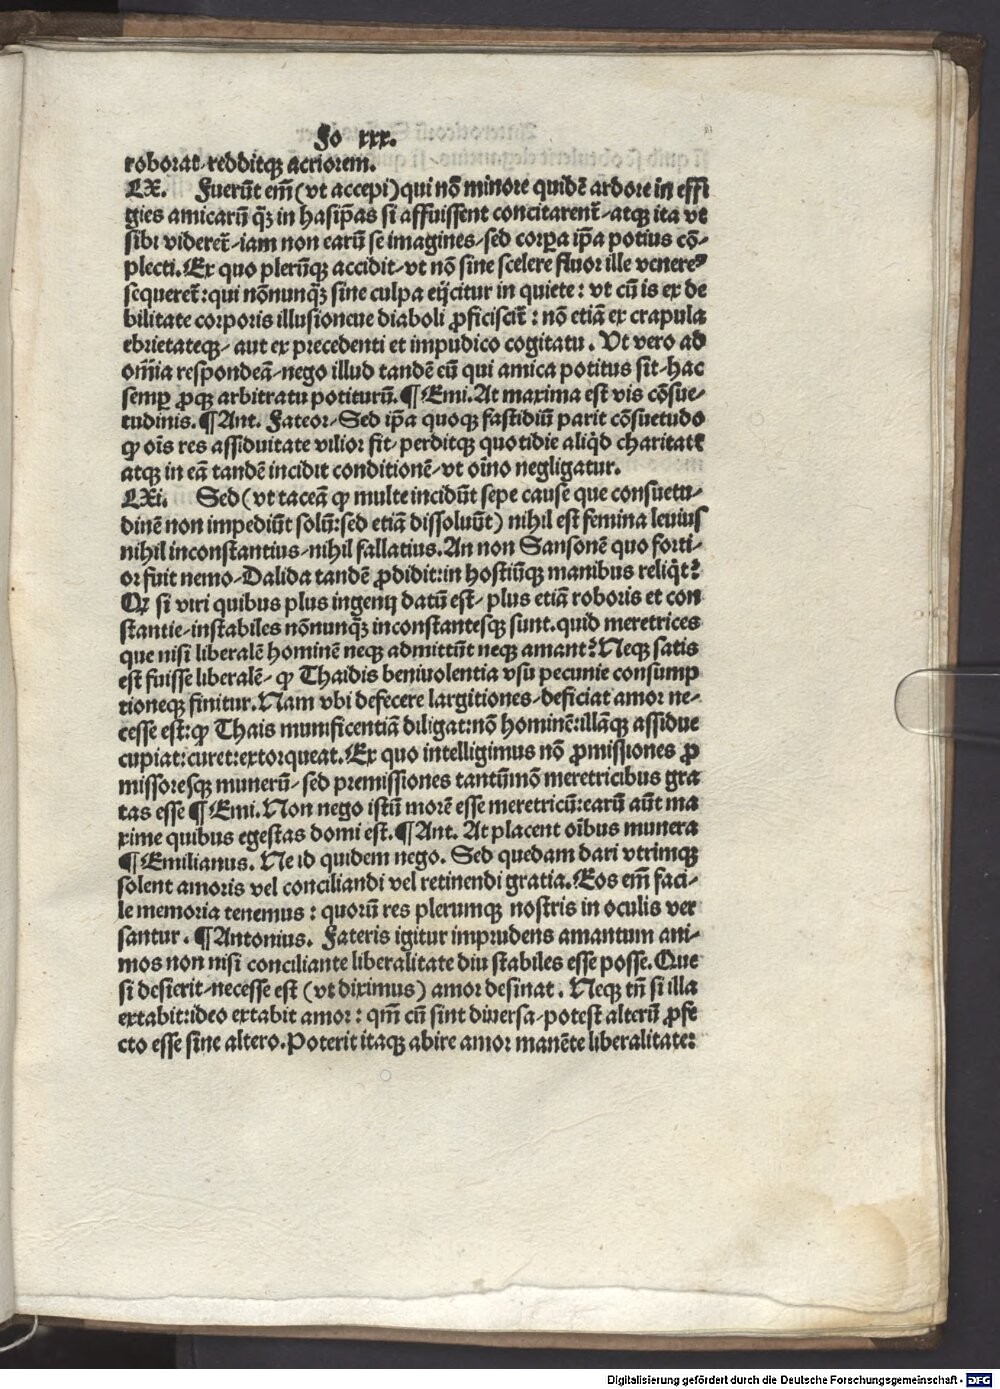 Fo xxx.
roborat redditqꝫ acriorem.
LX. Fuerūt em̄ (vt accepi) qui nō minore quidē ardore in effi
gies amicarū qꝫ in has ip̄as si affuissent concitarent̄ atqꝫ ita vt
sibi videret̄ iam non earū se imagines sed corꝑa ip̄a potius cō-
plecti. Ex quo plerūqꝫ accidit vt nō sine scelere fluor ille venereꝰ
sequeret̄: qui nōnunqꝫ sine culpa eijcitur in quiete: vt cū is ex de
bilitate corporis illusioncue diaboli ꝓficiscit̄: nō etiā ex crapula
ebrietateqꝫ aut ex precedenti et impudico cogitatu. Vt vero ad
om̄ia respondeā nego illud tandē eū qui amica potitus sit hac
semꝑ ꝓqꝫ arbitratu potiturū. ¶ Emi. At maxima est vis cōsue-
tudinis. ¶ Ant. Fateor Sed ip̄a quoqꝫ fastidiū parit cōsuetudo
ꝙ oīs res assiduitate vilior fit perditqꝫ quotidie aliqͥd charitatē
atqꝫ in eā tandē incidit conditionē vt oīno negligatur.
LXi. Sed (vt taceā ꝙ multe incidūt sepe cause que consuetu-
dinē non impediūt solū: sed etiā dissoluūt) nihil est femina leuius
nihil inconstantius nihil fallatius. An non Sansonē quo forti-
or fuit nemo Dalida tandē ꝓdidit: in hostiūqꝫ manibus reliqͥt?
Qꝛ si viri quibus plus ingenij datū est plus etiā roboris et con
stantie instabiles nōnunqꝫ inconstantesqꝫ sunt. quid meretrices
que nisi liberalē hominē neqꝫ admittūt neqꝫ amant? Neqꝫ satis
est fuisse liberalē ꝙ Thaidis beniuolentia vsu pecunie consump
tioneqꝫ finitur. Nam vbi defecere largitiones deficiat amor ne-
cesse est: ꝙ Thais munificentiā diligat: nō hominē: illāqꝫ assidue
cupiat: curet: extorqueat. Ex quo intelligimus nō ꝓmissiones ꝓ
missoresqꝫ munerū sed premissiones tantūmō meretricibus gra
tas esse ¶ Emi. Non nego istū morē esse meretricū: earū aūt ma
xime quibus egestas domi est. ¶ Ant. At placent oībus munera
¶ Emilianus. Ne id quidem nego. Sed quedam dari vtrimqꝫ
solent amoris vel conciliandi vel retinendi gratia. Eos em̄ faci-
le memoria tenemus: quorū res plerumqꝫ nostris in oculis ver
santur. ¶ Antonius. Fateris igitur imprudens amantum ani-
mos non nisi conciliante liberalitate diu stabiles esse posse. Que
si desierit necesse est (vt diximus) amor desinat. Neqꝫ tn̄ si illa
extabit: ideo extabit amor: qm̄ cū sint diuersa potest alterū ꝓfe
cto esse sine altero. Poterit itaqꝫ abire amor manēte liberalitate:
Digitalisierung gefördert durch die Deutsche Forschungsgemeinschaft - DFG